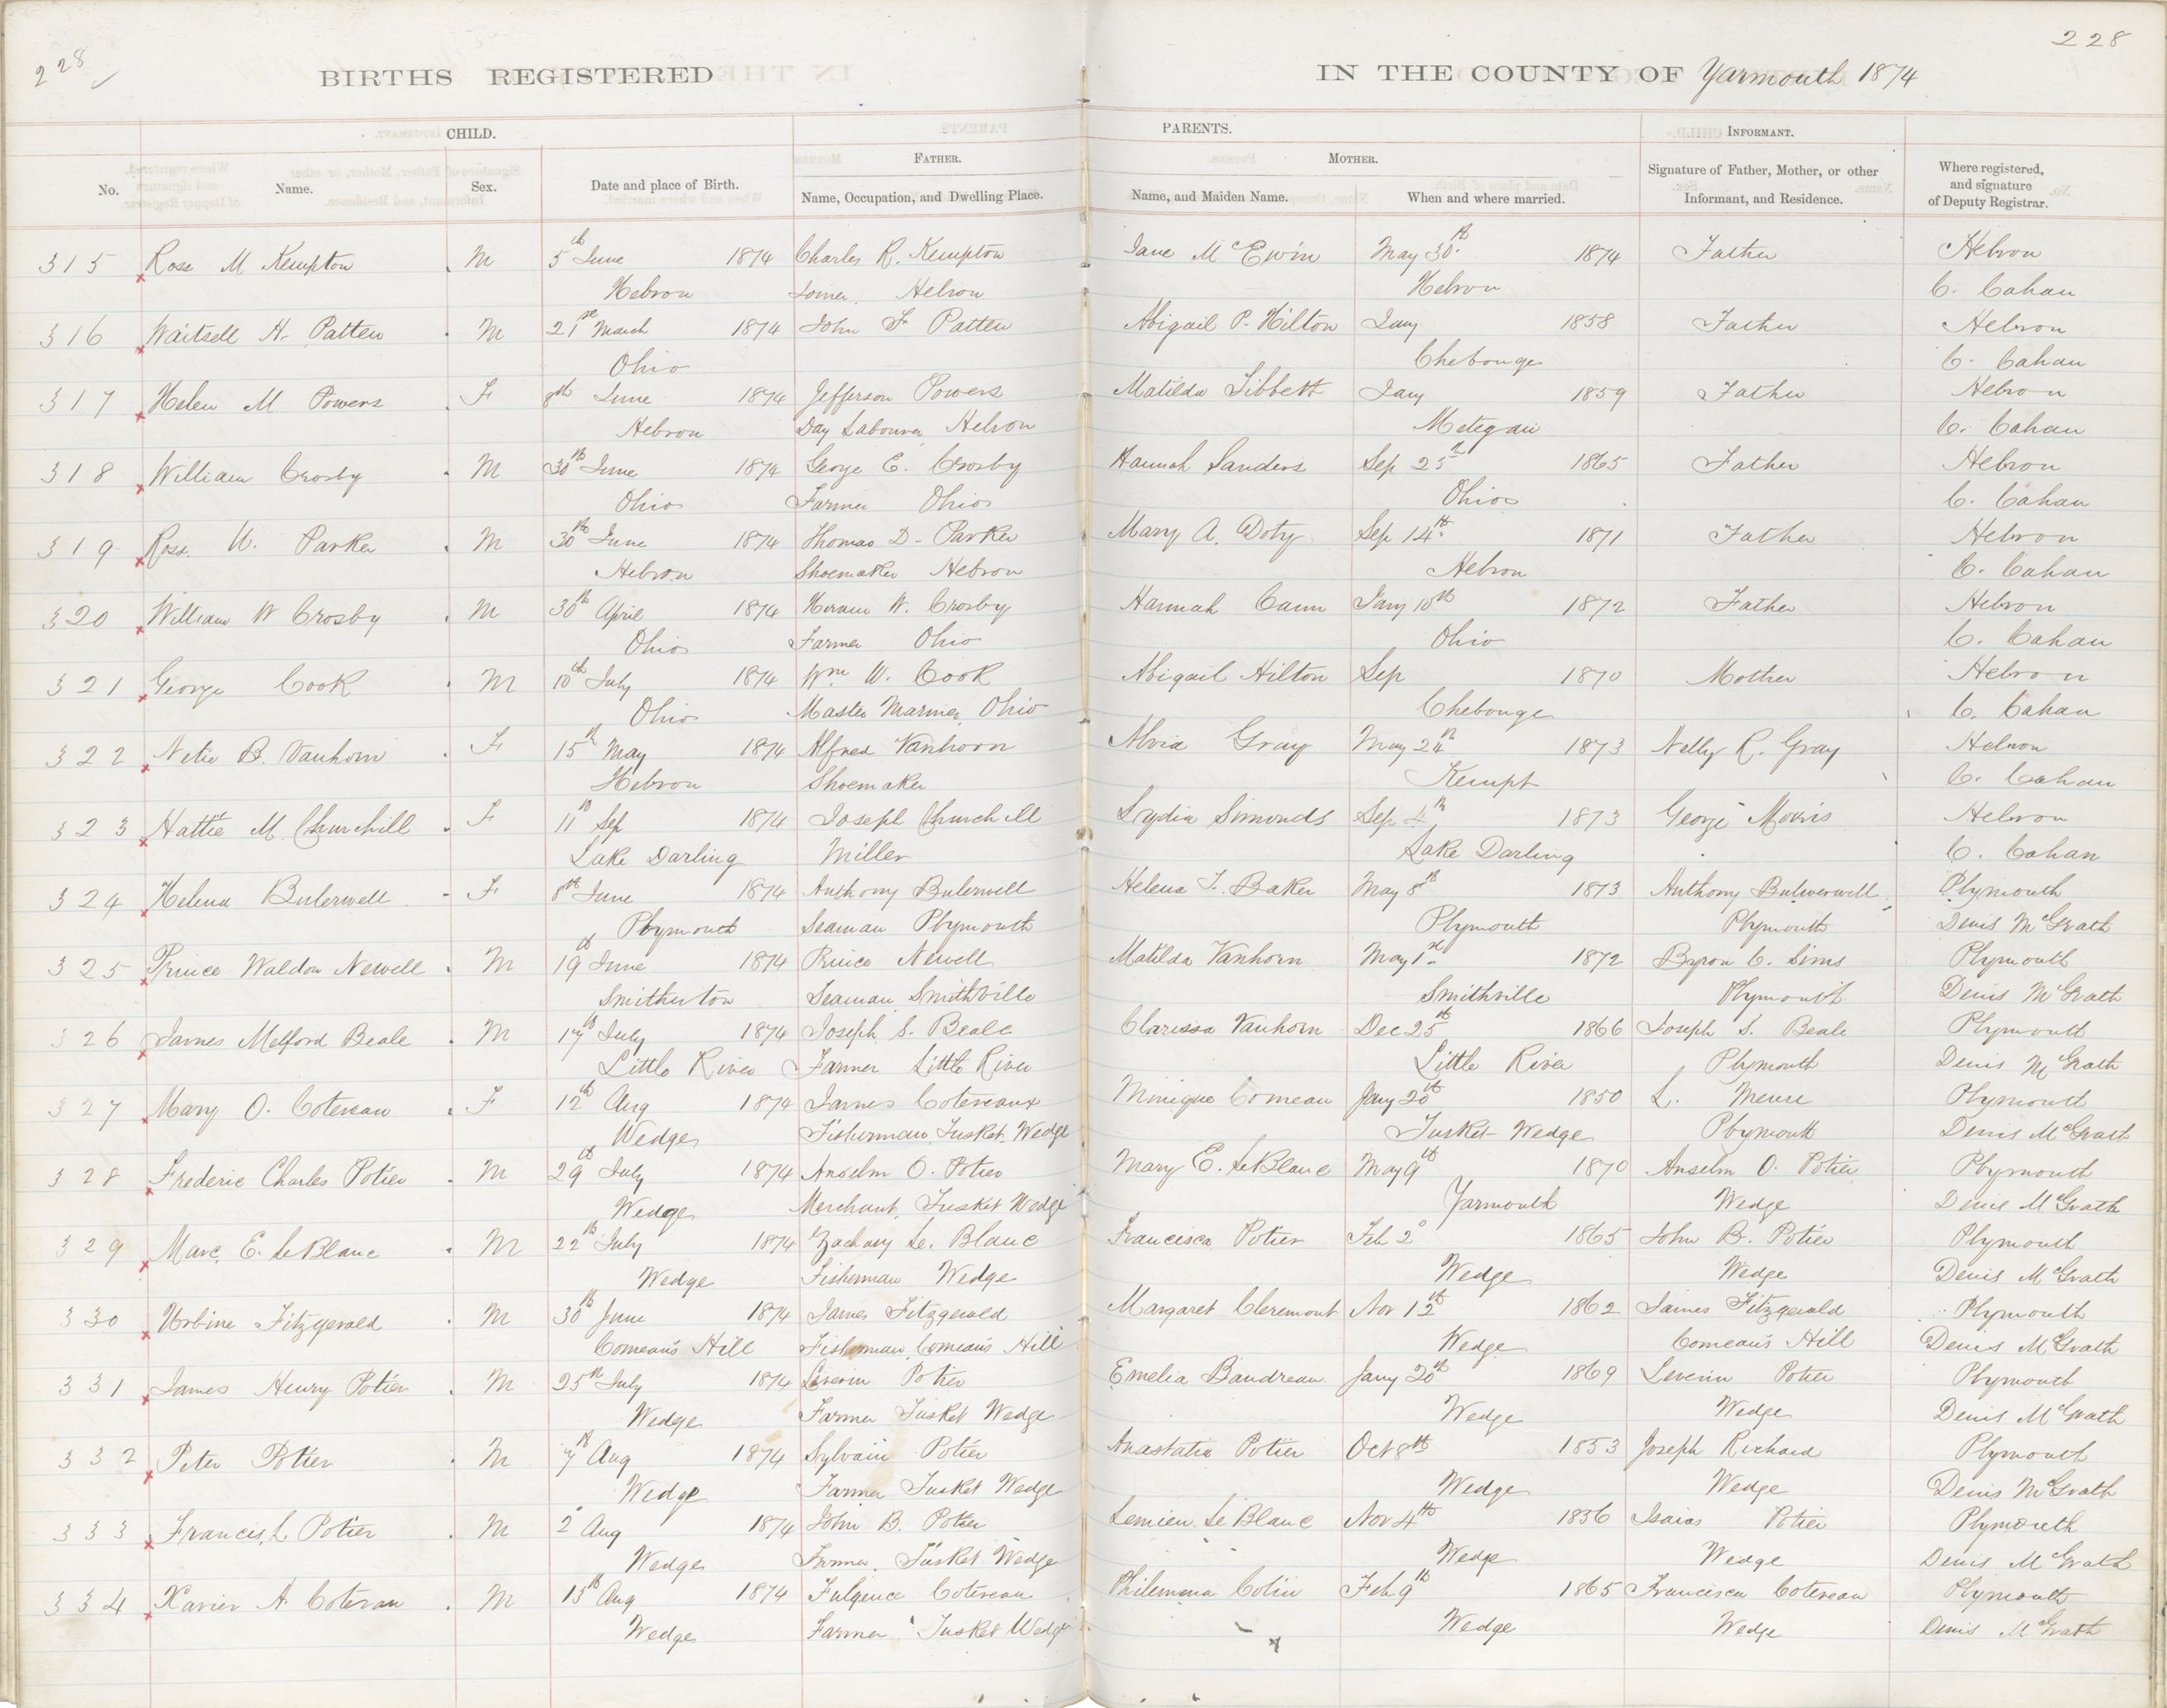 228 228
BIRTHS REGISTERED IN THE COUNTY OF Yarmouth 1874
CHILD. PARENTS. INFORMANT.
FATHER. MOTHER.
No. Name. Sex. Date and place of Birth. Name, Occupation, and Dwelling Place. Name, and Maiden Name. When and where married. Signature of Father, Mother, or other Informant, and Residence. Where registered, and signature of Deputy Registrar.
315 Ross M Kempton M 5th June 1874 Charles R. Kempton Jane McEwin May 30th 1874 Father Hebron
Hebron Hebron Hebron C. Cahan
316 Waitsell H. Patten M 21st March 1874 John F. Patten Abigail P. Hilton Jany 1858 Father Hebron
Ohio Chebouge C. Cahan
317 Helen M Powers F 8th June 1874 Jefferson Powers Matilda Tibbett Jany 1859 Father Hebron
Hebron Day Labourer Hebron Metegan C. Cahan
318 William Crosby M 30th June 1874 George E. Crosby Hannah Sanders Sep 25th 1865 Father Hebron
Ohio Farmer Ohio Ohio C. Cahan
319 Ross. W. Parker M 30th June 1874 Thomas D. Parker Mary A. Doty Sep 14th 1871 Father Hebron
Hebron Shoemaker Hebron Hebron C. Cahan
320 William W Crosby M 30th April 1874 Hiram W. Crosby Hannah Cann Jany 10th 1872 Father Hebron
Ohio Farmer Ohio Ohio C. Cahan
321 George Cook M 10th July 1874 Wm W. Cook Abigail Hilton Sep 1870 Mother Hebron
Ohio Master Mariner Ohio Chebouge C. Cahan
322 Netie B. Vanhorn F 15th May 1874 Alfred Vanhorn Alvia Gray May 24th 1873 Nelly R. Gray Hebron
Hebron Shoemaker Kempt C. Cahan
323 Hattie M. Churchill F 11th Sep 1874 Joseph Churchill Lydia Simonds Sep 4th 1873 George Morris Hebron
Lake Darling Miller Lake Darling C. Cahan
324 Helena Bulerwell F 8th June 1874 Anthony Bulerwell Helena T. Baker May 8th 1873 Anthony Bulwerwell Plymouth
Plymouth Seaman Plymouth Plymouth Plymouth Denis McGrath
325 Prince Waldon Newell M 19th June 1874 Prince Newell Matilda Vanhorn May 1st 1872 Byron C. Sims Plymouth
Smitherton Seaman Smithville Smithville Plymouth Denis McGrath
326 James Melford Beale M 17th July 1874 Joseph S. Beale Clarissa Vanhorn Dec 25th 1866 Joseph S. Beale Plymouth
Little River Farmer Little River Little River Plymouth Denis McGrath
327 Mary O. Cotereau F 12th Aug 1874 James Cotereaux Minique Comeau Jany 20th 1850 L. Meuse Plymouth
Wedge Fisherman Tusket Wedge Tusket Wedge Plymouth Denis McGrath
328 Frederic Charles Potier M 29th July 1874 Anselm O. Potier Mary E. LeBlanc May 9th 1870 Anselm O. Potier Plymouth
Wedge Merchant, Tusket Wedge Yarmouth Wedge Denis McGrath
329 Marc. E. LeBlanc M 22th July 1874 Zachary Le. Blanc Francisca Potier Feb 2 1865 John B. Potier Plymouth
Wedge Fisherman Wedge Wedge Wedge Denis McGrath
330 Urbine Fitzgerald M 30th June 1874 James Fitzgerald Margaret Cleremont Nov 12th 1862 James Fitzgerald Plymouth
Comeau's Hill Fisherman, Comeau's Hill Wedge Comeau's Hill Denis McGrath
331 James Henry Potier M 25th July 1874 Leverin Potier Emelia Baudreau Jany 20th 1869 Leverin Potier Plymouth
Wedge Farmer Tusket Wedge Wedge Wedge Denis McGrath
332 Peter Potier M 7th Aug 1874 Sylvain Potier Anastatia Potier Oct 8th 1853 Joseph Richard Plymouth
Wedge Farmer Tusket Wedge Wedge Wedge Denis McGrath
333 Francis, L. Potier M 2 Aug 1874 John B. Potier LeBlanc Nov 4th 1856 Isaias Potier Plymouth
Wedge Farmer Tusket Wedge Wedge Wedge Denis McGrath
334 Xavier A. Coterau M 15th Aug 1874 Fulgence Cotereau Philemena Colin Feb 9th 1865 Francisca Cotereau Plymouth
Wedge Farmer Tusket Wedge Wedge Wedge Denis McGrath